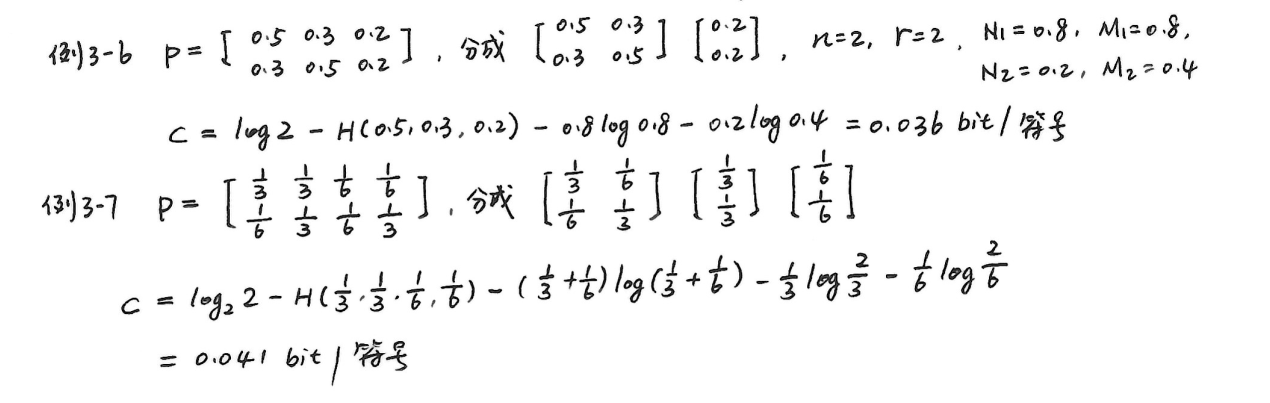 例3-6 P = [0.5 0.3 0.2; 0.3 0.5 0.2], 分成 [0.5 0.3; 0.3 0.5] [0.2; 0.2], n=2, r=2, N1=0.8, M1=0.8,
N2=0.2, M2=0.4
C = log2 - H(0.5, 0.3, 0.2) - 0.8log0.8 - 0.2log0.4 = 0.036 bit/符号
例3-7 P = [1/3 1/3 1/6 1/6; 1/6 1/3 1/6 1/3], 分成 [1/3 1/6; 1/6 1/3] [1/3; 1/3] [1/6; 1/6]
C = log₂2 - H(1/3·1/3·1/6, 1/6) - (1/3+1/6)log(1/3+1/6) - 1/3log2/3 - 1/6log2/6
= 0.041 bit/符号